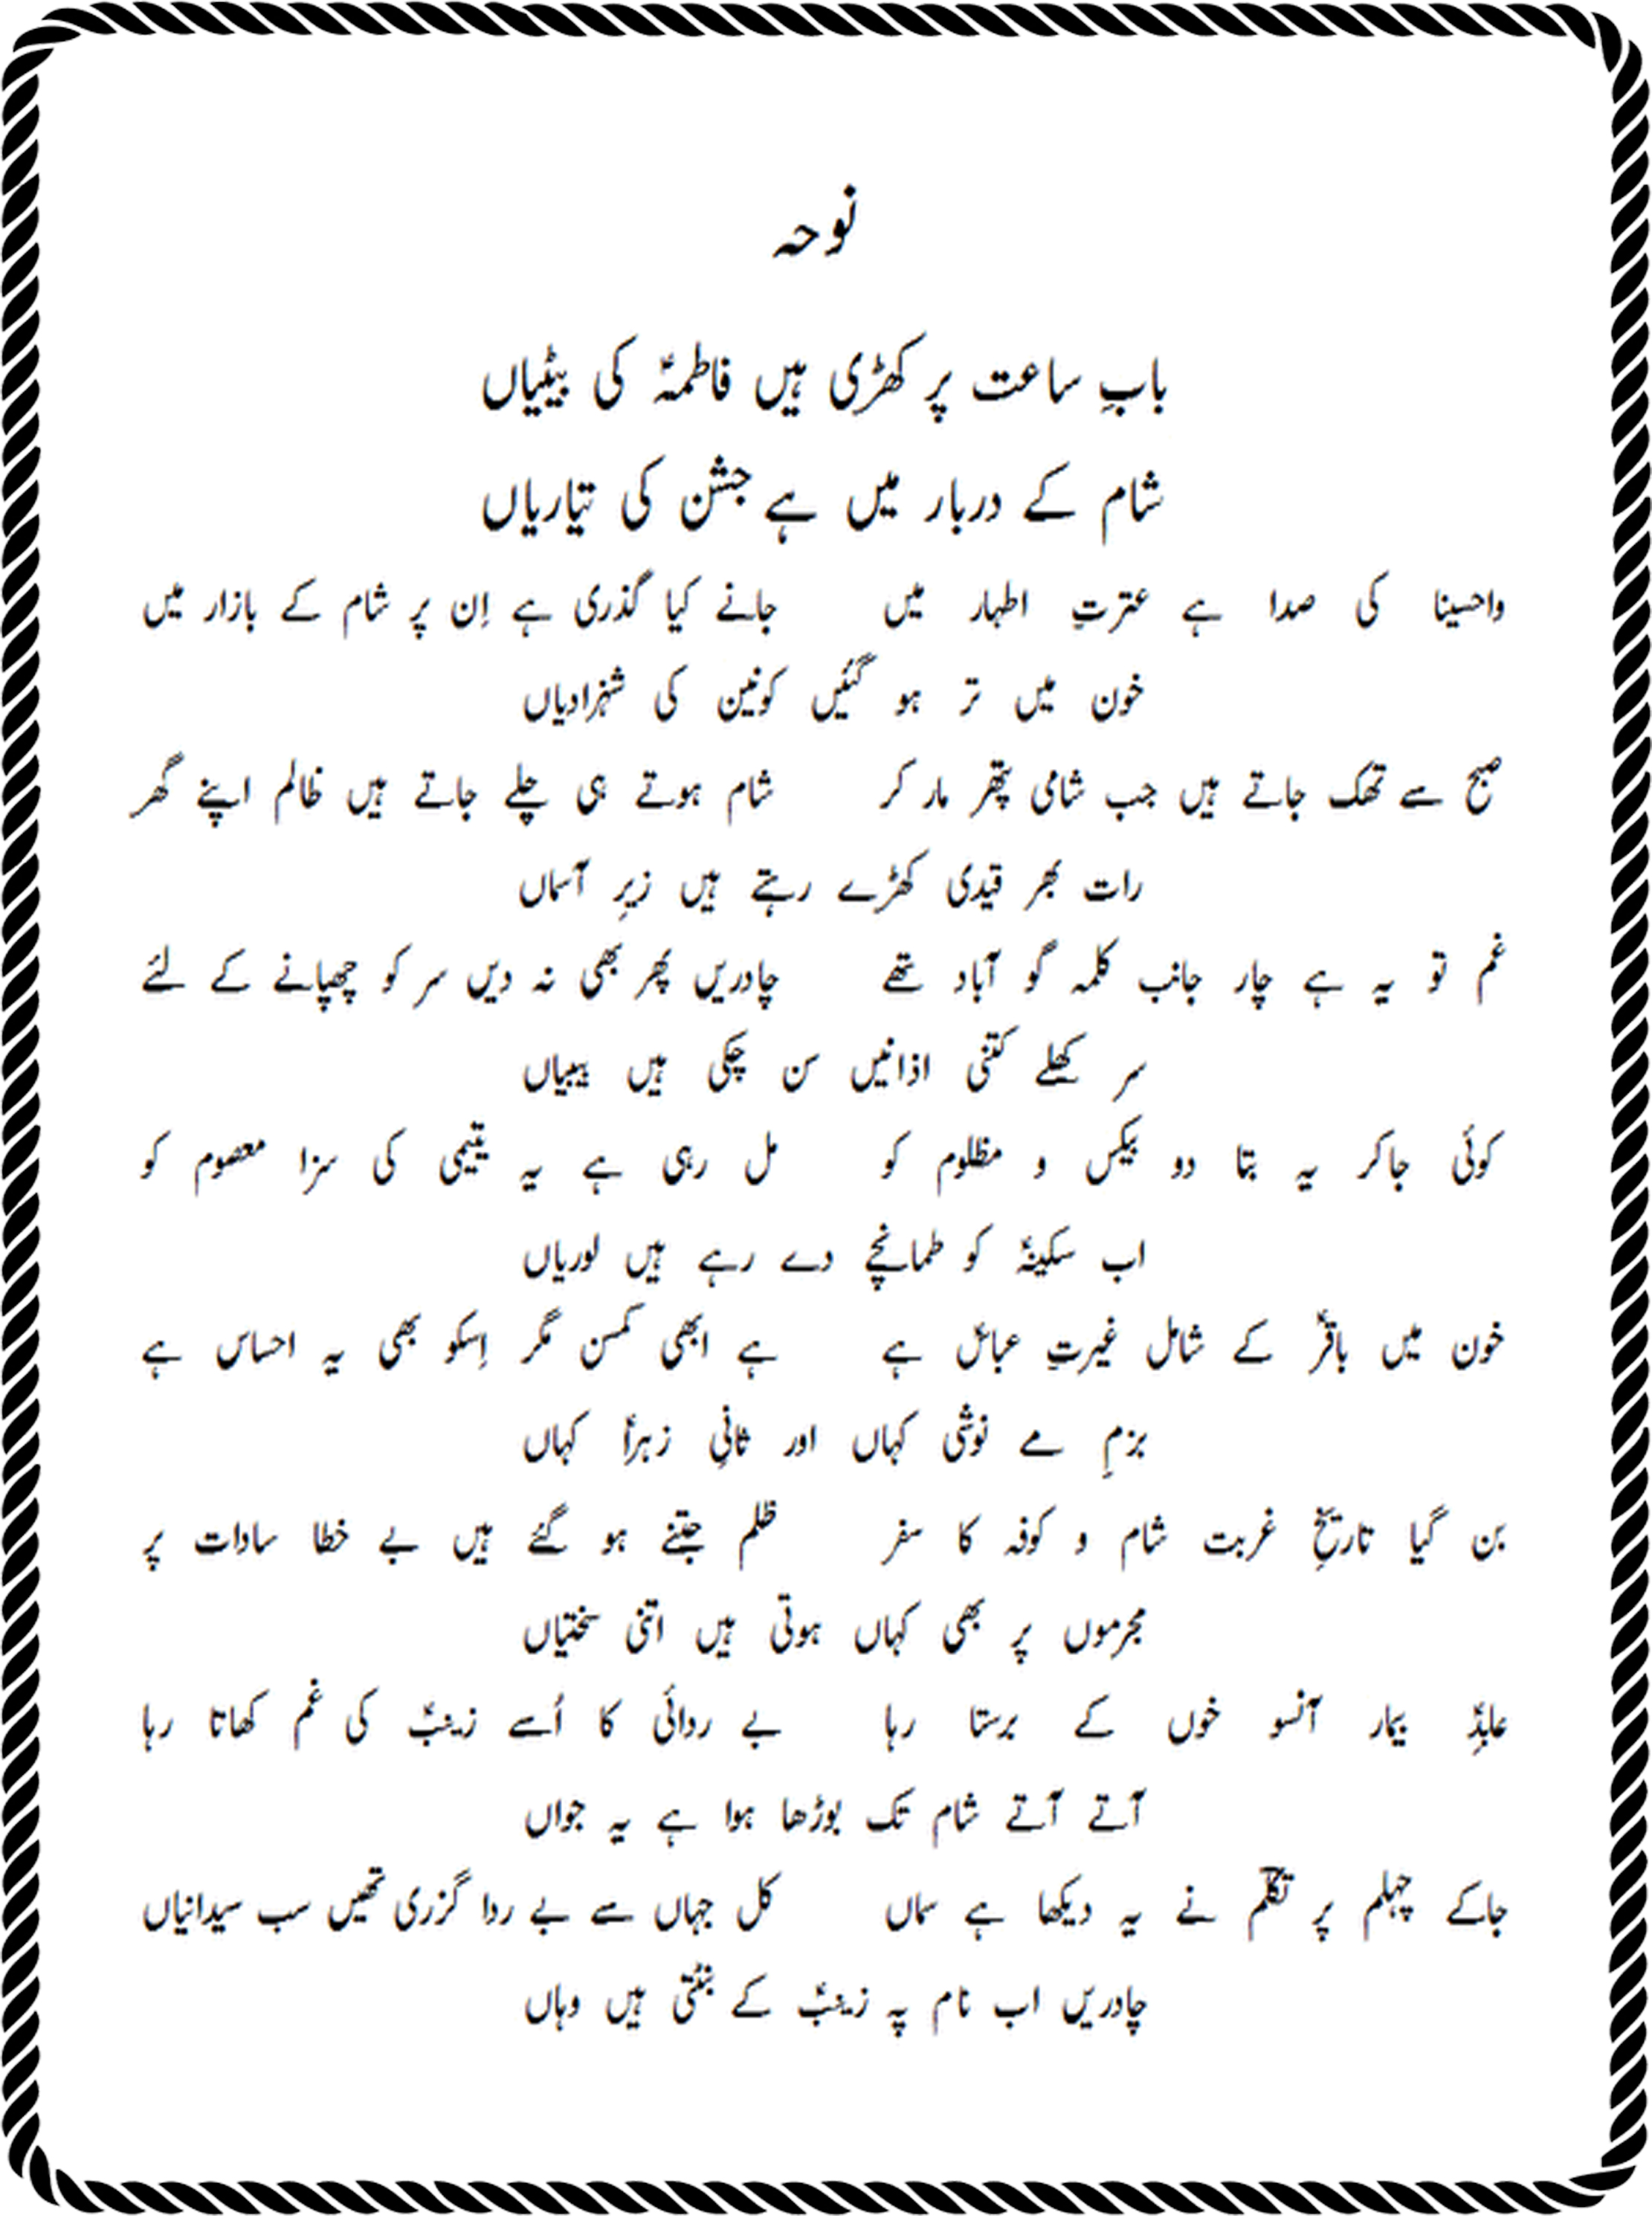 نوحہ
بابِ ساعت پر کھڑی ہیں فاطمہؑ کی بیٹیاں
شام کے دربار میں ہے جشن کی تیاریاں
واحسینا کی صدا ہے عترتِ اطہار میں جانے کیا گذری ہے اِن پر شام کے بازار میں
خون میں تر ہو گئیں کونین کی شہزادیاں
صبح سے تھک جاتے ہیں جب شامی پتھر مار کر شام ہوتے ہی چلے جاتے ہیں ظالم اپنے گھر
رات بھر قیدی کھڑے رہتے ہیں زیرِ آسماں
غم تو یہ ہے چار جانب کلمہ گو آباد تھے چادریں پھر بھی نہ دیں سر کو چھپانے کے لئے
سر کھلے کتنی اذانیں سن چکی ہیں بیبیاں
کوئی جاکر یہ بتا دو بیکس و مظلوم کو مل رہی ہے یہ یتیمی کی سزا معصوم کو
اب سکینہؑ کو طمانچے دے رہے ہیں لوریاں
خون میں باقرؑ کے شامل غیرتِ عباسؑ ہے ہے ابھی کمسن مگر اِسکو بھی یہ احساس ہے
بزمِ مے نوشی کہاں اور ثانیِ زہراؑ کہاں
بن گیا تاریخِ غربت شام و کوفہ کا سفر ظلم جتنے ہو گئے ہیں بے خطا سادات پر
مجرموں پر بھی کہاں ہوتی ہیں اتنی سختیاں
عابدِؑ بیمار آنسو خوں کے برستا رہا بے ردائی کا اُسے زینبؑ کی غم کھاتا رہا
آتے آتے شام تک بوڑھا ہوا ہے یہ جواں
جاکے چہلم پر تکلّم نے یہ دیکھا ہے سماں کل جہاں سے بے ردا گزری تھیں سب سیدانیاں
چادریں اب نام پہ زینبؑ کے بٹتی ہیں وہاں